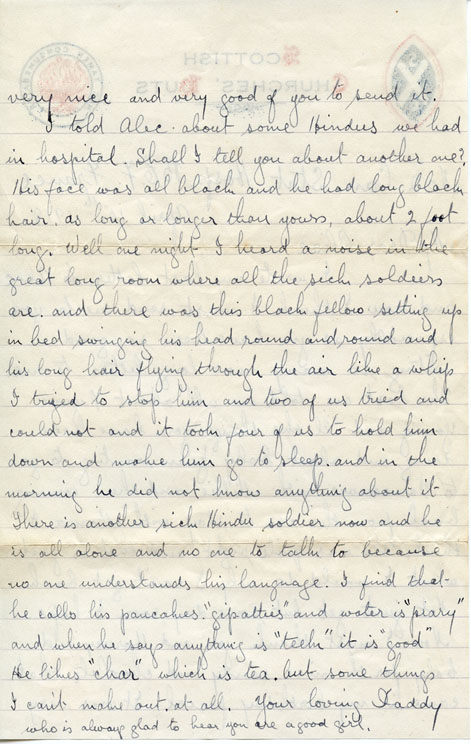 very nice and very good of you to send it.
I told Alec about some Hindus we had
in hospital. Shall I tell you about another one?
His face was all black and he had long black
hair. as long or longer than yours, about 2 foot
long. Well one night I heard a noise in the
great long room where all the sick soldiers
are. and there was this black fellow sitting up
in bed swinging his head round and round and
his long hair flying through the air like a whip
I tryed to stop him and two of us tried and
could not and it took four of us to hold him
down and make him go to sleep. and in the
morning he did not know anything about it
There is another sick Hindu soldier now and he
is all alone and no one to talk to because
no one understands his language. I find that
he calls his pancakes. "gipatties" and water is "piary"
and when he says anything is "teek" it is "good"
He likes "char" which is tea. but some things
I can't make out. at all. Your loving Daddy
who is always glad to hear you are a good girl.
SCOTTISH
CHURCHES' HUTS